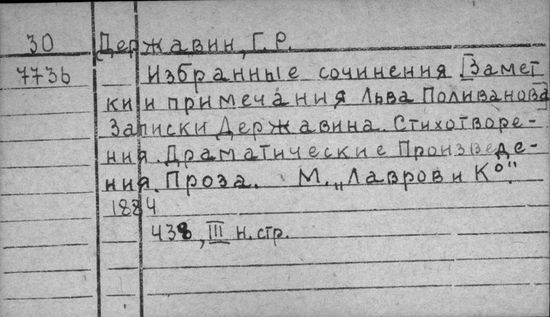 30 Державин, Г.Р.
7736 Избранные сочинения [Замет
ки и примечания Льва Поливанова
Записки Державина. Стихотворе-
ния. Драматические Произведе-
ния. Проза. М. „Лавров и К°".
1884
438, III н.стр.